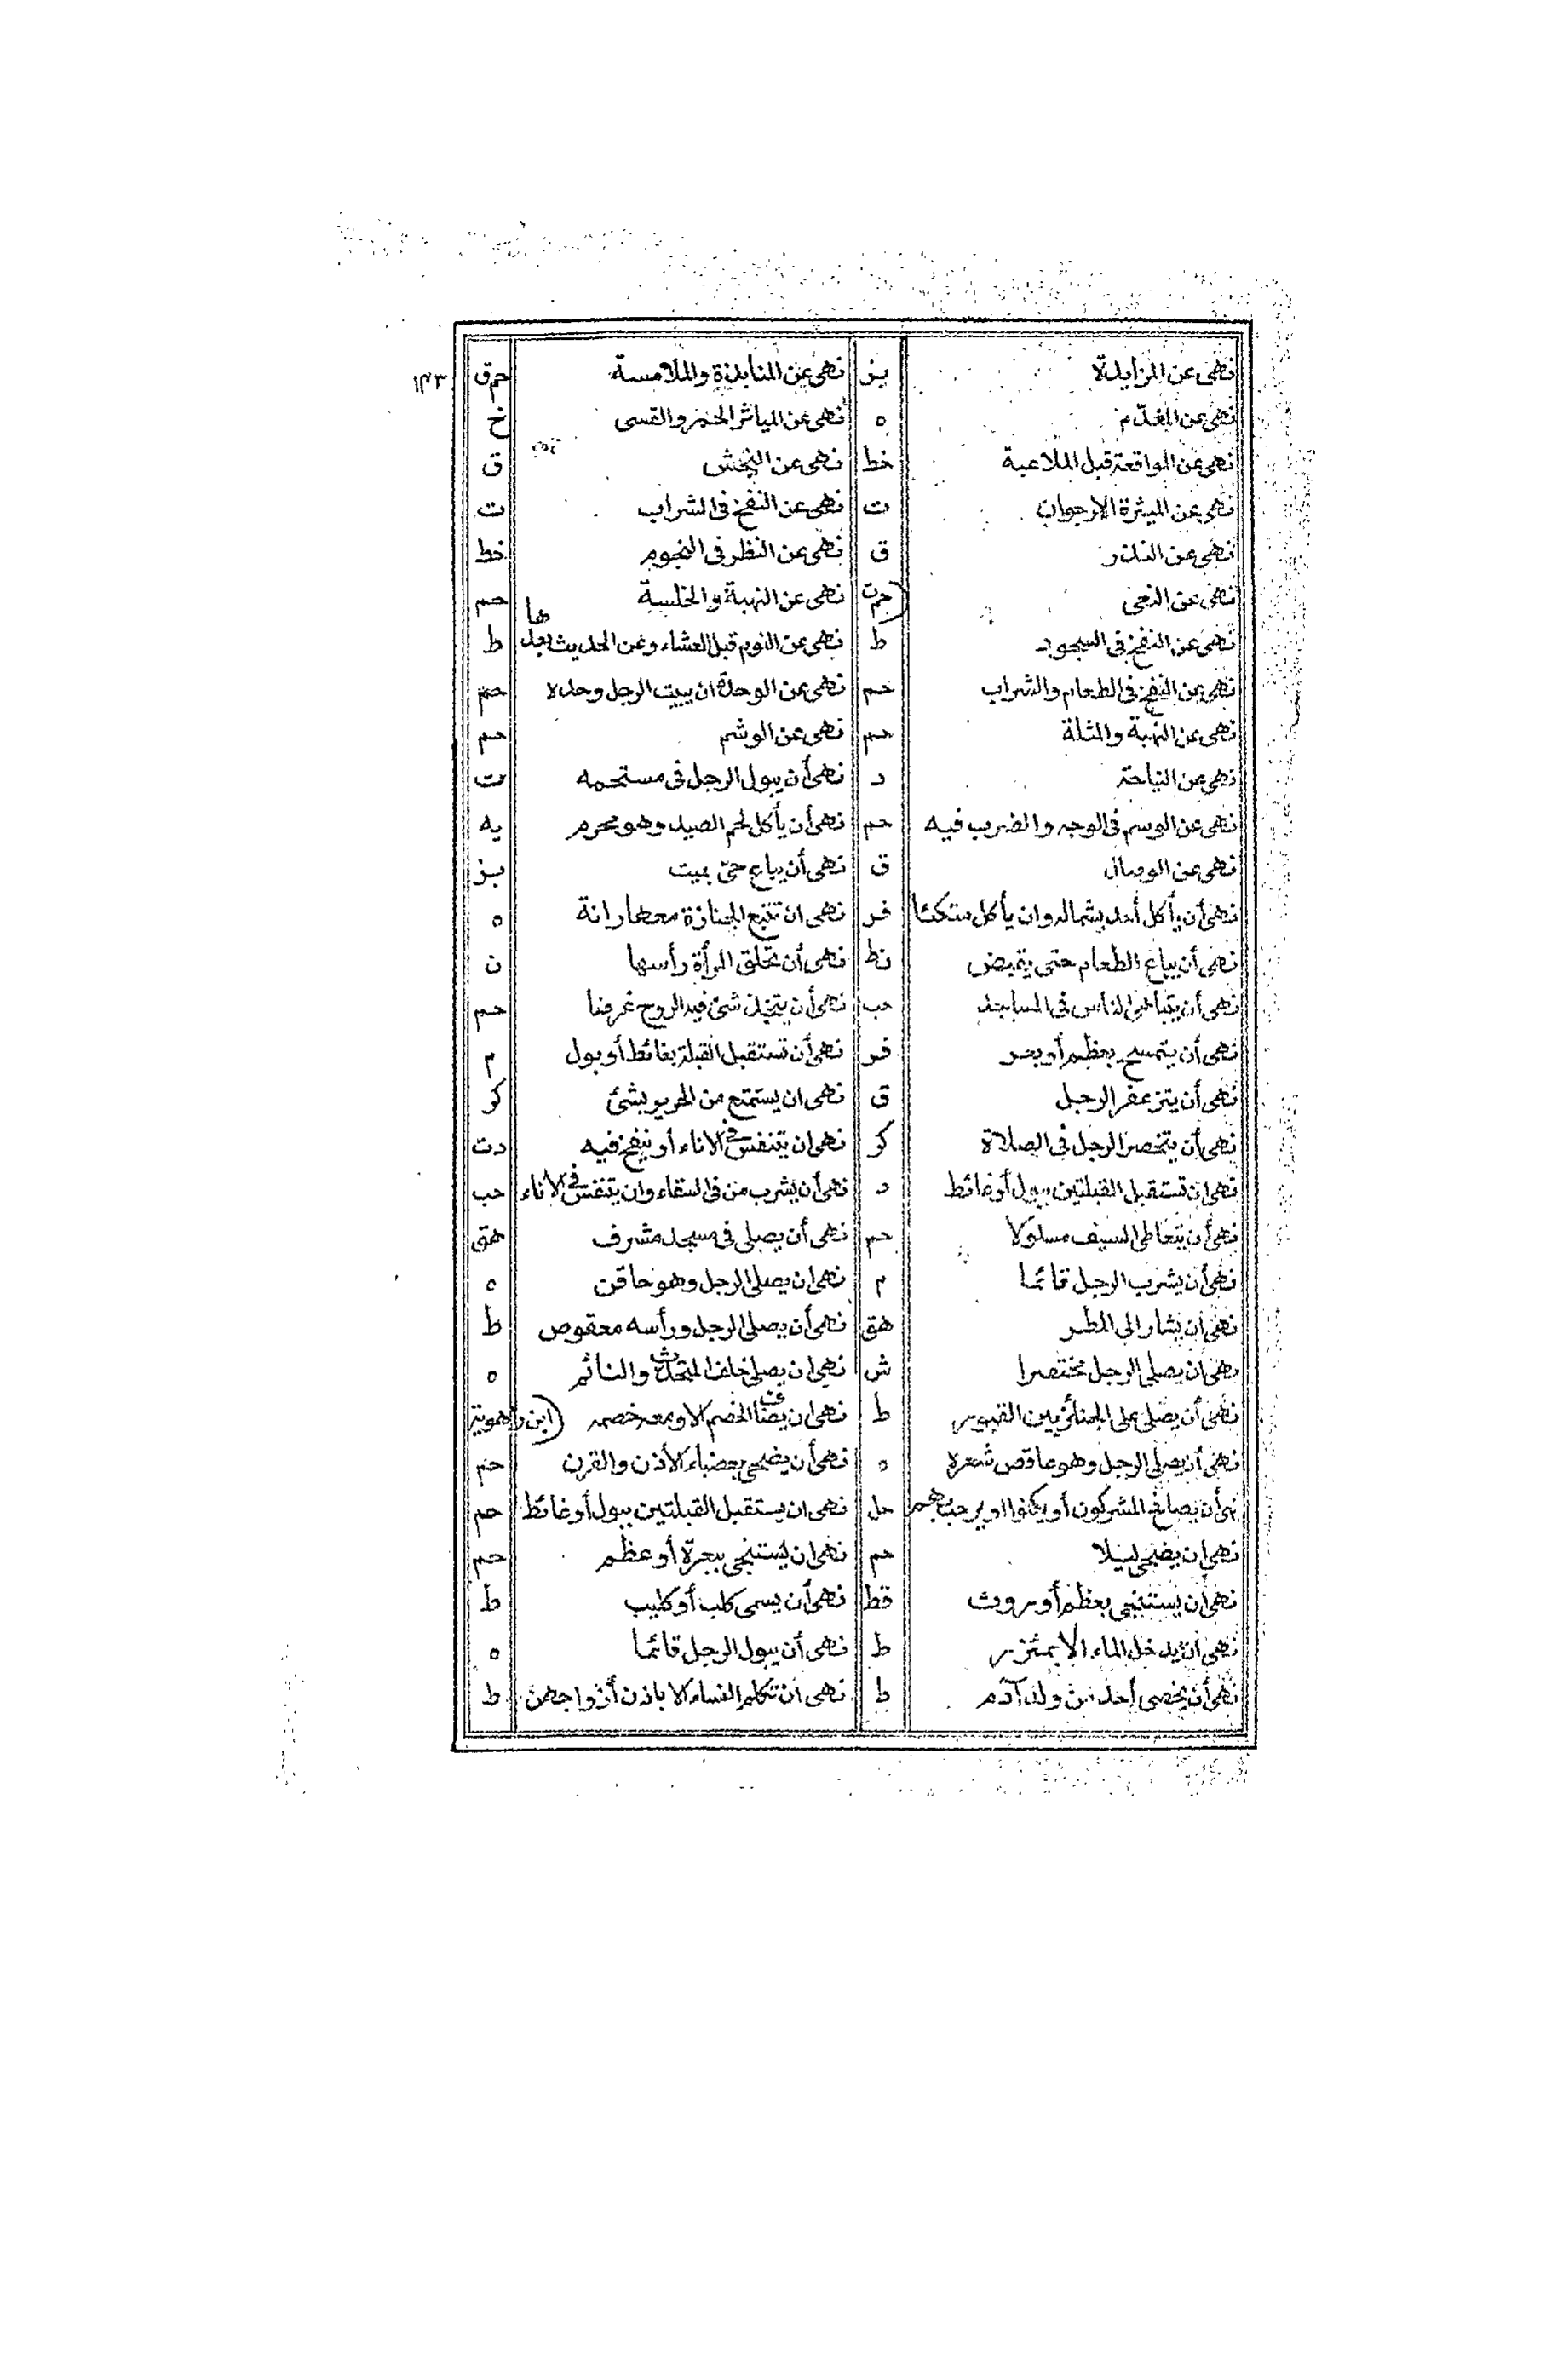 نهى عن المزايدة بز نهى عن المنابذة والملامسة حم ق ١٤٣
نهى عن المفدّم ه نهى عن المياثر الحمر والقسى خ
نهى عن المواقعة قبل الملاعبة خط نهى عن النجش ق
نهى عن الميثرة الارجوان ت نهى عن النفخ فى الشراب ت
نهى عن النذر ق نهى عن النظر فى النجوم خط
نهى عن النعى حم ت نهى عن النهبة والخلسة حم
نهى عن النفخ فى السجود ط نهى عن النوم قبل العشاء وعن الحديث بعدها ط
نهى عن النفخ فى الطعام والشراب حم نهى عن الوحدة ان يبيت الرجل وحده حم
نهى عن النهبة والمثلة حم نهى عن الوشم حم
نهى عن النياحة د نهى أن يبول الرجل فى مستحمه ت
نهى عن الوسم فى الوجه والضرب فيه حم نهى أن يأكل لحم الصيد وهو محرم يه
نهى عن الوصال ق نهى أن يباع حىّ بميت بز
نهى أن يأكل أحد بشماله وان يأكل متكئا فر نهى ان تتبع الجنازة معها رانة ه
نهى أن يباع الطعام حتى يقبض نط نهى أن تحلق المرأة رأسها ن
نهى أن يتباهى الناس فى المساجد حب نهى أن يتخذ شئ فيه الروح غرضا حم
نهى أن يتمسح بعظم أو بعر فر نهى أن تستقبل القبلة بغائط أو بول م
نهى أن يتزعفر الرجل ق نهى ان يستمتع من الحرير بشئ كر
نهى أن يتخصر الرجل فى الصلاة كر نهى ان يتنفس فى الاناء أو ينفخ فيه دت
نهى ان تستقبل القبلتين ببول أو غائط د نهى أن يشرب من فى السقاء وان يتنفس فى الاناء حب
نهى أن يتعاطى السيف مسلولا حم نهى أن يصلى فى مسجد مشرف هق
نهى أن يشرب الرجل قائما م نهى ان يصلى الرجل وهو حاقن ه
نهى أن يشار الى المطر هق نهى أن يصلى الرجل ورأسه معقوص ط
نهى ان يصلى الرجل مختصرا ش نهى ان يصلى خلف المتحدث والنائم ه
نهى أن يصلى على الجنائز بين القبور ط نهى ان الخصم الا ومعه خصمه (ابن راهوية
نهى أن يصلى الرجل وهو عاقص شعره ه نهى أن يضحى بعضباء الأذن والقرن حم
نهى أن يصافح المشركون أو يكنوا او يرحب بهم حل نهى ان يستقبل القبلتين ببول أو غائط حم
نهى ان يضحى ليلا حم نهى ان يستنجى ببعرة أو عظم حم
نهى أن يستنجى بعظم أو روث قط نهى أن يسمى كلب أو كليب ط
نهى أن يدخل الماء الا بمئزر ط نهى أن يبول الرجل قائما ه
نهى أن يخصى أحد من ولد آدم ط نهى أن تكلم النساء الا باذن أزواجهن ط